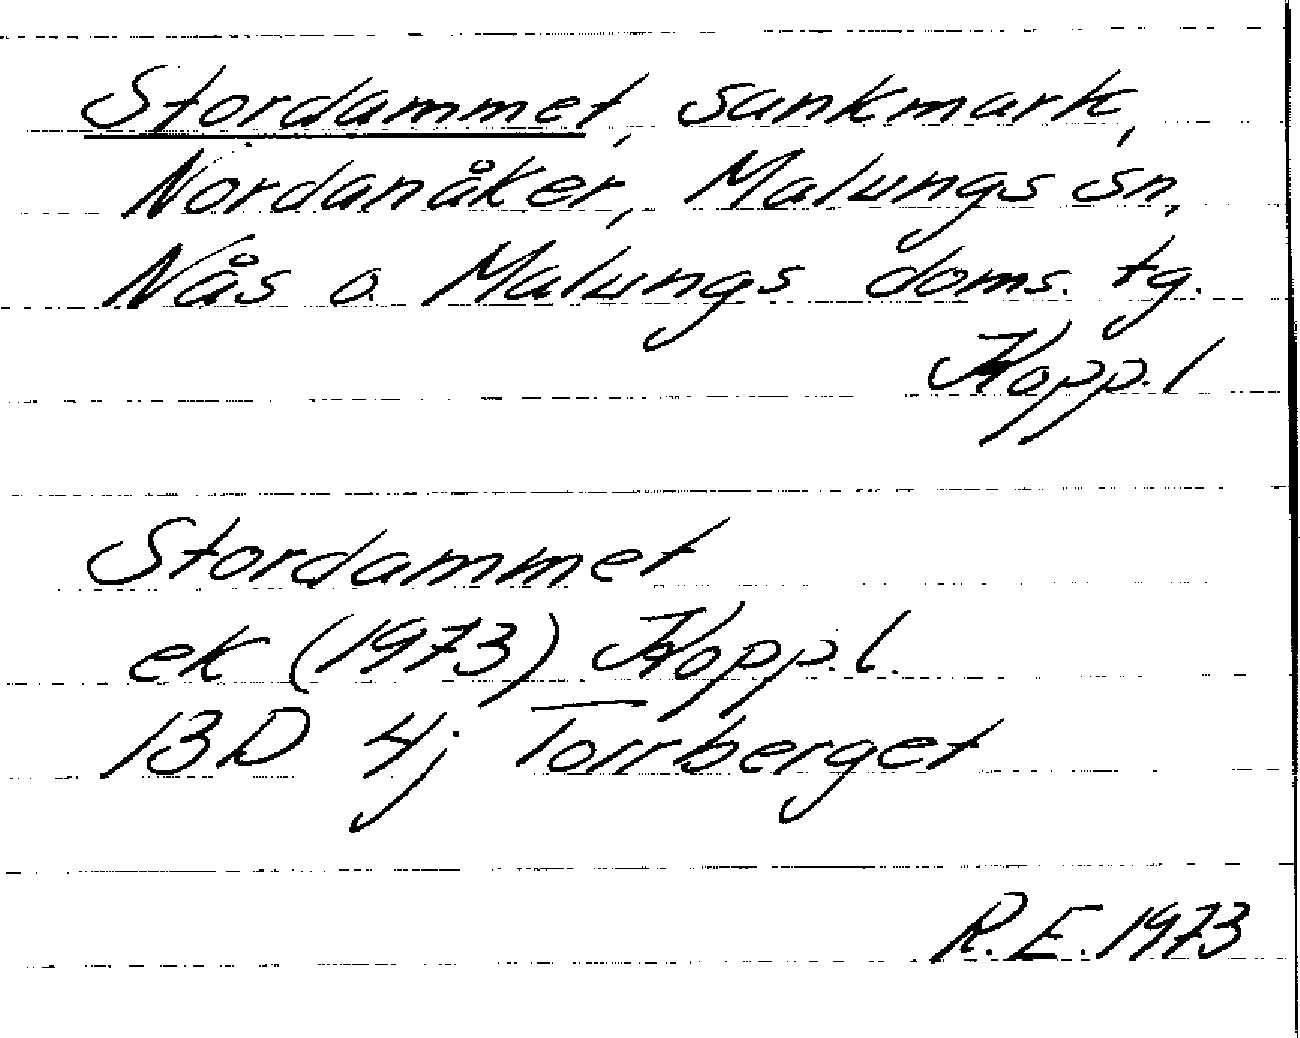 Stordammet, sankmark,
Nordanåker, Malungs sn,
Nås o. Malungs doms. tg.
Kopp.l
Stordammet
ek (1973) Kopp.l.
13D 4j Torrberget
R.E. 1973